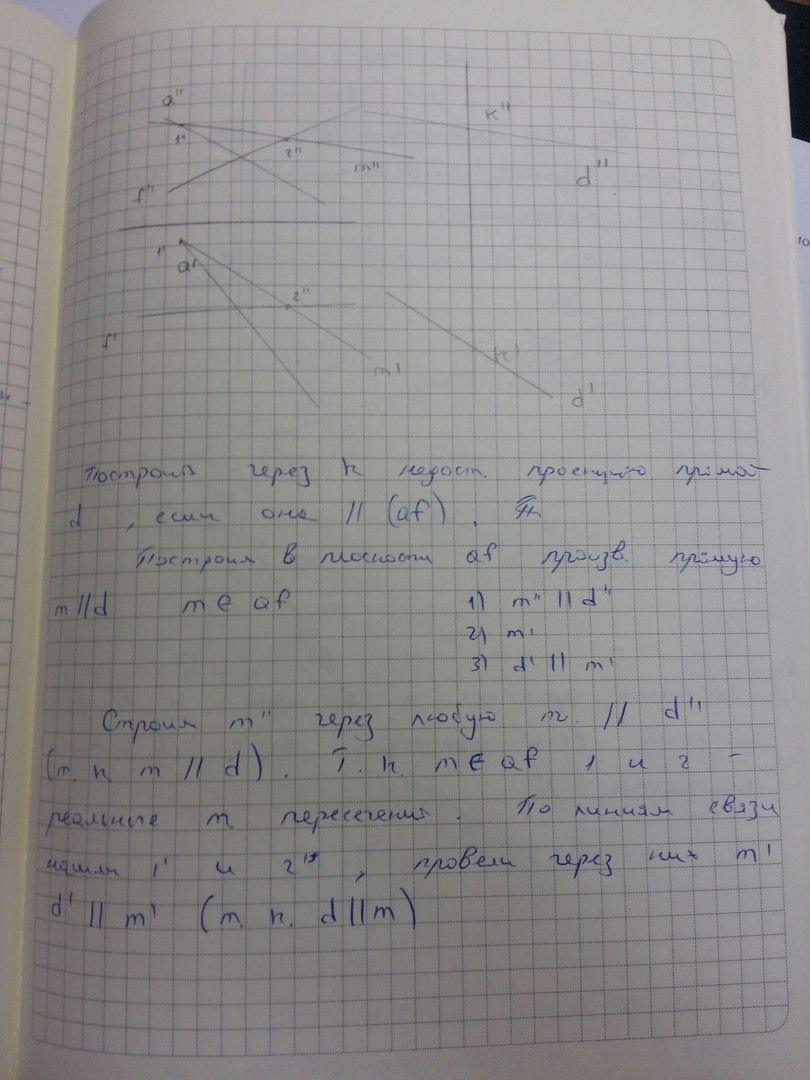 a"
k"
1"
2"
m"
d"
f"
1"
a'
2"
f'
k'
m'
d'
Построить через k недост. проекцию прямой
d, если она // (af).
Построим в плоскости af произв. прямую
m//d m ∈ af 1) m" // d"
2) m'
3) d' // m'
Строим m" через любую т. // d"
(т. к. m // d). Т. к. m ∈ af 1 и 2 –
реальные т. пересечения. По линиям связи
нашли 1' и 2', провели через них m'
d' // m' (т. к. d//m)
10